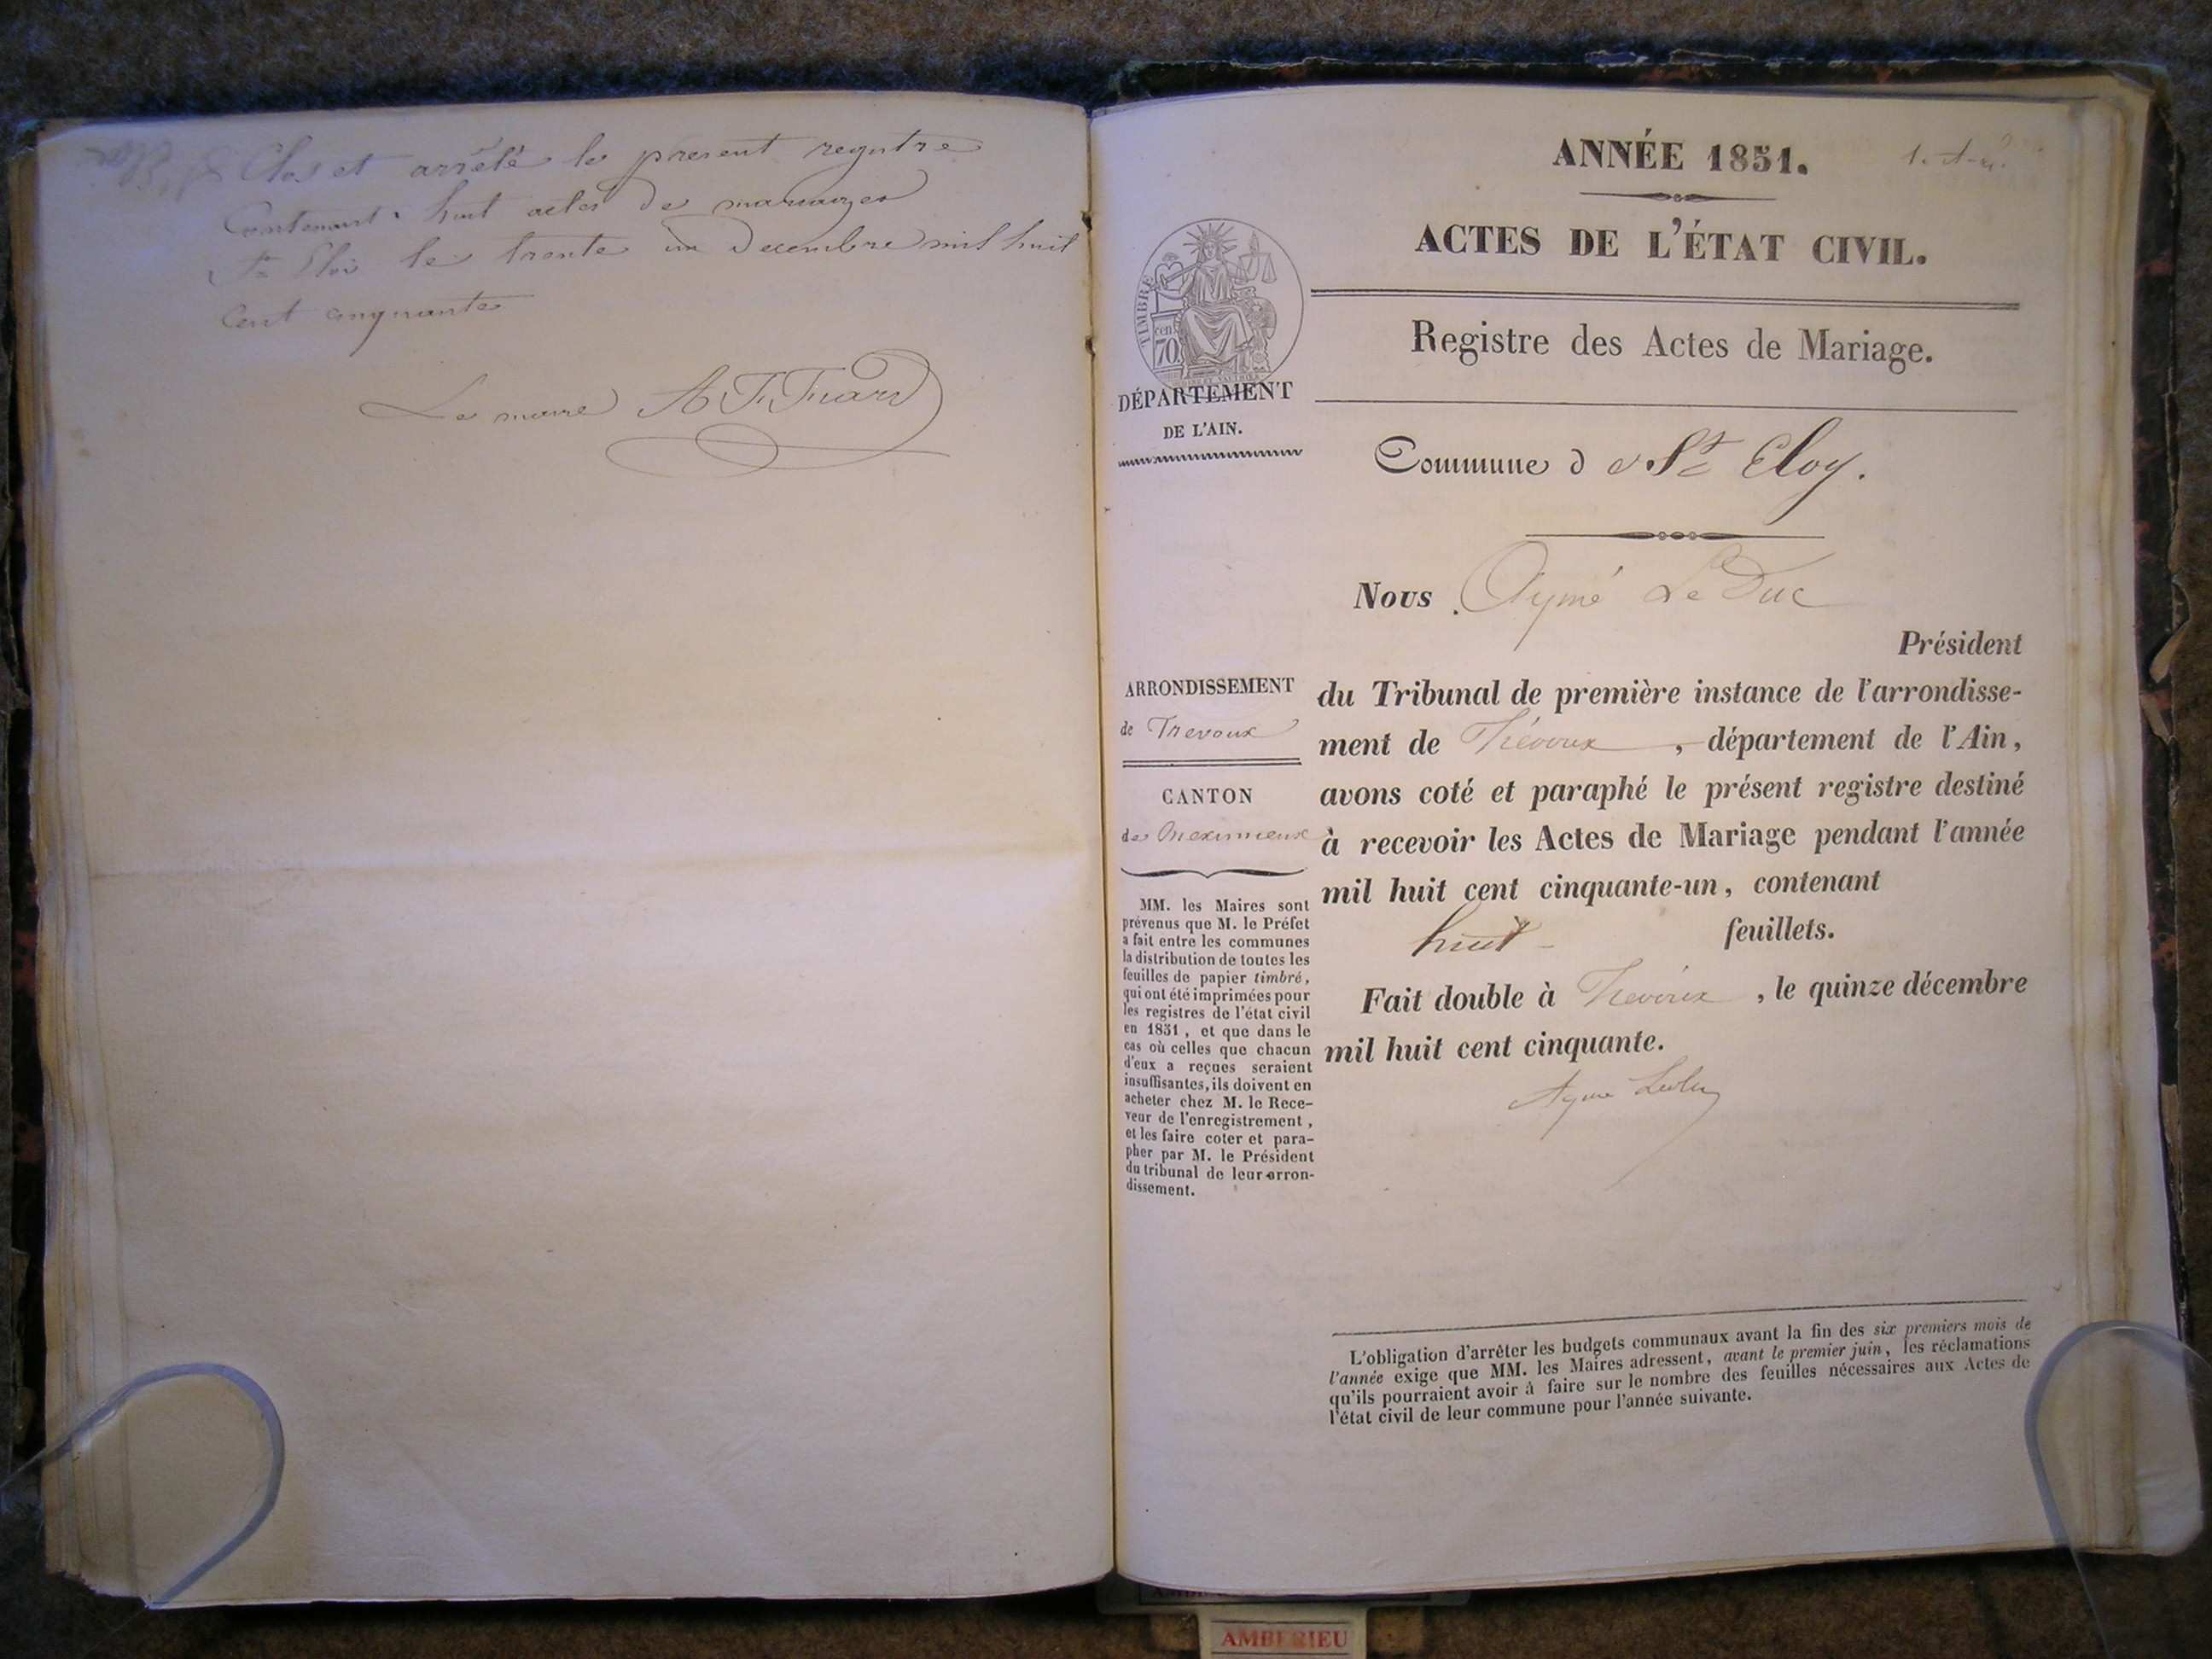 Clos et arrêté le present registre
Contenant huit actes de mariages
St Eloi le trente un Decembre mil huit
Cent cinquante
Le maire
ANNÉE 1851.
ACTES DE L'ÉTAT CIVIL.
TIMBRE
cen
70
Registre des Actes de Mariage.
DÉPARTEMENT
DE L'AIN.
Commune d e St Eloy.
Nous Aymé Le Duc
Président
du Tribunal de première instance de l'arrondisse-
ment de Trévoux, département de l'Ain,
avons coté et paraphé le présent registre destiné
à recevoir les Actes de Mariage pendant l'année
mil huit cent cinquante-un, contenant
huit feuillets.
Fait double à Trévoux, le quinze décembre
mil huit cent cinquante.
Ayme Leduc
ARRONDISSEMENT
de Trevoux
CANTON
de Meximieux
MM. les Maires sont
prévenus que M. le Préfet
a fait entre les communes
la distribution de toutes les
feuilles de papier timbré,
qui ont été imprimées pour
les registres de l'état civil
en 1851, et que dans le
cas où celles que chacun
d'eux a reçues seraient
insuffisantes, ils doivent en
acheter chez M. le Rece-
veur de l'enregistrement,
et les faire coter et para-
pher par M. le Président
du tribunal de leur arron-
dissement.
L'obligation d'arrêter les budgets communaux avant la fin des six premiers mois de
l'année exige que MM. les Maires adressent, avant le premier juin, les réclamations
qu'ils pourraient avoir à faire sur le nombre des feuilles nécessaires aux Actes de
l'état civil de leur commune pour l'année suivante.
AMBERIEU